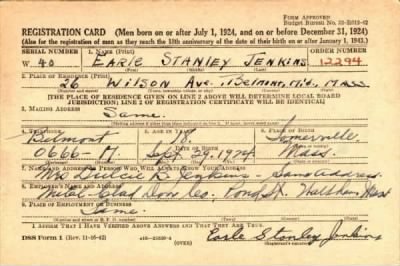 FORM APPROVED
REGISTRATION CARD (Men born on or after July 1, 1924, and on or before December 31, 1924)
(Also for the registration of men as they reach the 18th anniversary of the date of their birth on or after January 1, 1943.)
SERIAL NUMBER 1. NAME (Print) ORDER NUMBER
W 40 EARLE STANLEY JENKINS 12294
2. PLACE OF RESIDENCE (Print)
26 Wilson Ave., Belmont, Mid., Mass.
[THE PLACE OF RESIDENCE GIVEN ON LINE 2 ABOVE WILL DETERMINE LOCAL BOARD
JURISDICTION; LINE 2 OF REGISTRATION CERTIFICATE WILL BE IDENTICAL]
3. MAILING ADDRESS
Same.
4. TELEPHONE 5. AGE IN YEARS 6. PLACE OF BIRTH
Belmont 18 Somerville
0666-M Sept 29, 1924 Mass.
7. NAME AND ADDRESS OF PERSON WHO WILL ALWAYS KNOW YOUR ADDRESS
Jenkins - Same Address
8. EMPLOYER'S NAME AND ADDRESS
Metal-Clad Door Co. Pond St. Waltham Mass
9. PLACE OF EMPLOYMENT OR BUSINESS
Same.
I AFFIRM THAT I HAVE VERIFIED ABOVE ANSWERS AND THAT THEY ARE TRUE.
DSS Form 1 (Rev. 11-16-42) (OVER) Earle Stanley Jenkins